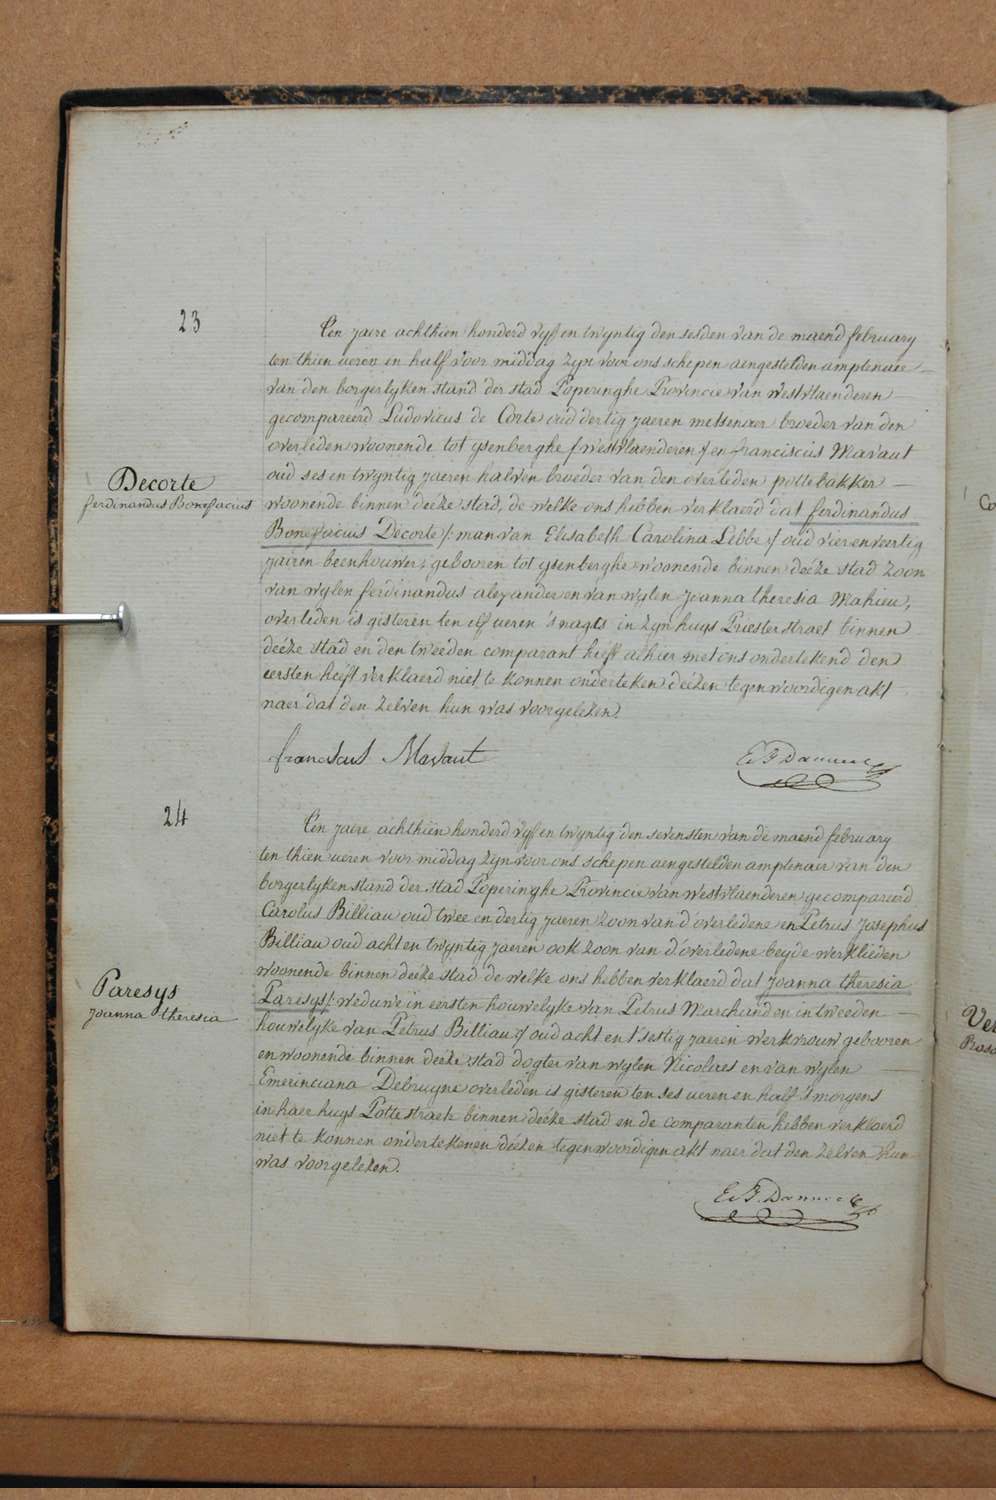 23
Decorte
ferdinandus Bonefacius
Een jaere achthien honderd vyf en twyntig den sesden van de maend february
ten thien ueren en half voor middag zyn voor ons schepen aengestelden amptenaer
van den borgerlyken stand der stad Poperinghe Provincie van westvlaenderen
gecompareerd Ludovicus de Corte oud dertig jaeren metsenaer broeder van den
overleden woonende tot ysenberghe (westvlaenderen) en franciscus Mavaut
oud ses en twyntig jaeren halven broeder van den overleden pottebakker
woonende binnen deéze stad, de welke ons hebben verklaerd dat ferdinandus
Bonefacius Decorte /: man van Elisabeth Carolina Lebbe :/ oud vier en veertig
jaeren beenhouwer, gebooren tot ysenberghe woonende binnen deéze stad zoon
van wylen ferdinandus alexander en van wylen Joanna theresia Mahieu,
overleden is gisteren ten elf ueren 's nagts in zyn huys Priesterstraet binnen
deéze stad en den tweeden comparant heéft alhier met ons ondertekend den
eersten heéft verklaerd niet te konnen onderteken deézen tegenwoordigen akt
naer dat den zelven hun was voorgelezen.
franciscus Mavaut
24
Paresys
Joanna theresia
Een jaere achthien honderd vyf en twyntig den sevensten van de maend february
ten thien ueren voor middag zyn voor ons schepen aengestelden amptenaer van den
borgerlyken stand der stad Poperinghe Provincie van westvlaenderen gecompareerd
Carolus Billiau oud twee en dertig jaeren zoon van d'overledene en Petrus Josephus
Billiau oud acht en twyntig jaeren ook zoon van d'overledene beyde werklieden
woonende binnen deéze stad de welke ons hebben verklaerd dat Joanna theresia
Paresys /: weduwe in eersten houwelyke van Petrus Marchand en in tweeden
houwelyke van Petrus Billiau :/ oud acht en t'sestig jaeren werkvrouw gebooren
en woonende binnen deéze stad dogter van wylen Nicolaes en van wylen
Emerinciana Debruyne overleden is gisteren ten ses ueren en half 's morgens
in haer huys Pottestraete binnen deéze stad en de comparanten hebben verklaerd
niet te konnen ondertekenen deézen tegenwoordigen akt naer dat den zelven hun
was voorgelezen.